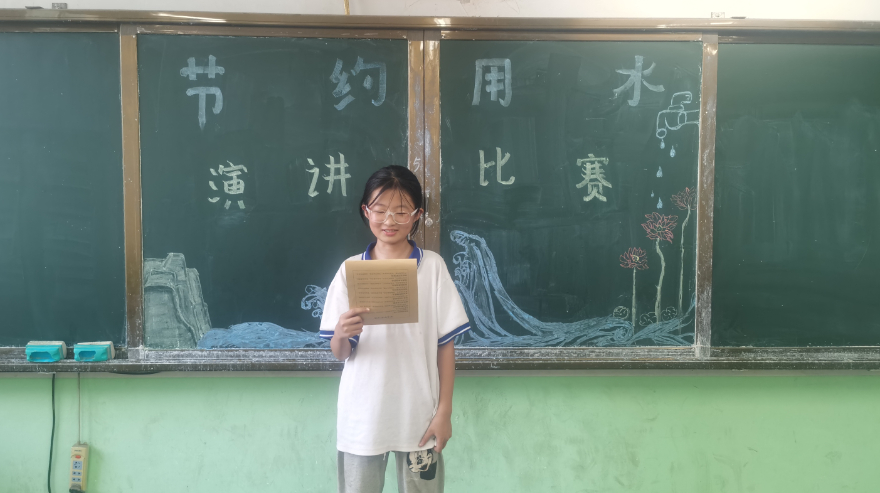 节约用水
演讲比赛